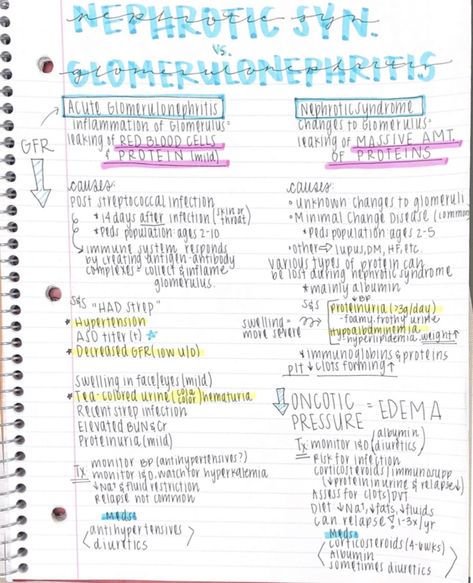 NEPHROTIC SYN.
vs.
GLOMERULONEPHRITIS
GFR
Acute Glomerulonephritis
inflammation of Glomerulus=
leaking of RED BLOOD CELLS
& PROTEIN (mild)
causes:
Post streptococcal infection
*14 days after infection (skin or throat)
*Peds population ages 2-10
immune system responds
by creating antigen-antibody
complexes = collect & inflame
glomerulus.
S&S "HAD STREP"
* Hypertension
ASO titer (+)
* Decreased GFR (low u/o)
Swelling in face/eyes (mild)
* Tea-colored urine (cola color) hematuria
Recent strep infection
Elevated BUN & Cr
Proteinuria (mild)
Tx monitor BP (antihypertensives?)
monitor I&O, watch for hyperkalemia
↓Na+ & fluid restriction
Relapse not common
Meds:
<antihypertensives
diuretics>
Nephrotic syndrome
changes to Glomerulus=
leaking of MASSIVE AMT.
OF PROTEINS
causes:
• unknown changes to glomeruli
• Minimal Change Disease (common)
*Peds population ages 2-5
• other → lupus, DM, HF, etc
various types of protein can
be lost during nephrotic syndrome
*mainly albumin
S&S ↓BP
proteinuria (>3g/day)
-foamy, frothy urine
swelling = more severe
hypoalbuminemia
-hyperlipidemia, weight↑
* immunoglobins & proteins
PLT ↓ clots forming ↑
↓ ONCOTIC PRESSURE = EDEMA
Tx monitor I&O (albumin diuretics)
Risk for infection
corticosteroids) immunosupp
(↓protein in urine & relapse↓)
Assess for clots) DVT
Diet ↓Na+, ↓fats, ↓fluids
can relapse! 1-3x/yr
Meds
<corticosteroids (4-6wks)
Albumin
sometimes diuretics>